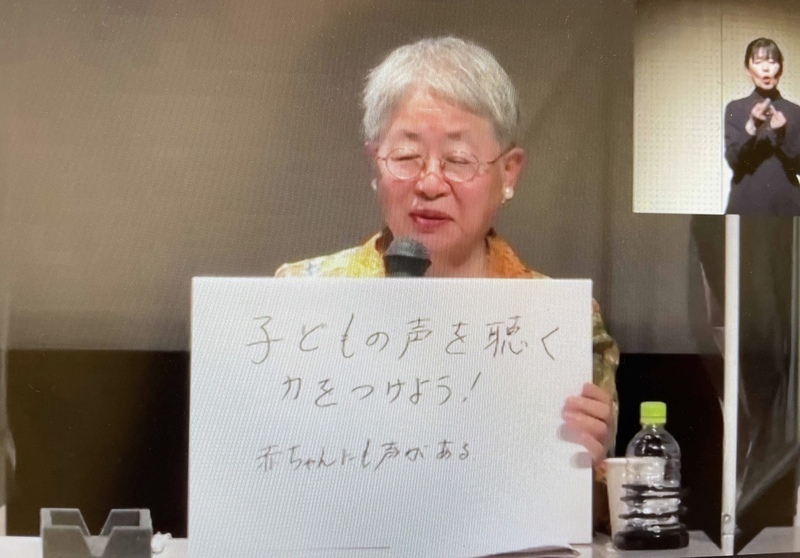 子どもの声を聴く
力をつけよう!
赤ちゃんにも声がある